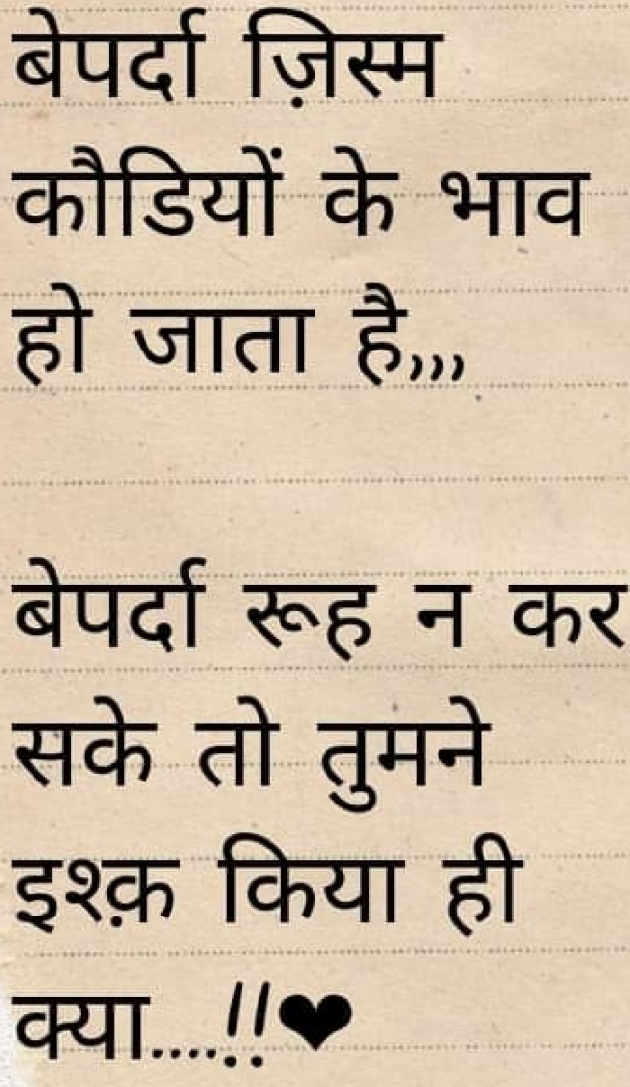 बेपर्दा ज़िस्म
कौडियों के भाव
हो जाता है,,,
बेपर्दा रूह न कर
सके तो तुमने
इश्क़ किया ही
क्या....!!❤